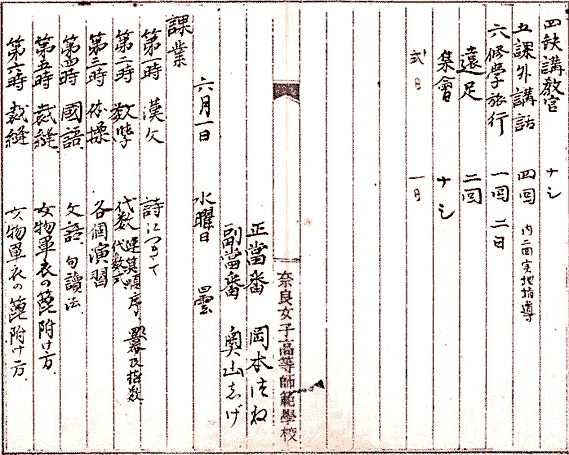 四 缺講教官 ナシ
五 課外講話 四回 内二回実地指導
六 修學旅行 一回 二日
遠足 二回
集會 ナシ
式日 一日
奈良女子高等師範學校
正當番 岡本つね
副當番 奥山しげ
六月一日 水曜日 曇
課業
第一時 漢文 詩について
第二時 数学 代数 代数式 冪及指数
第三時 体操 各個演習
第四時 國語 文語句讀法
第五時 裁縫 女物單衣の 附け方
第六時 裁縫 女物單衣の 附け方